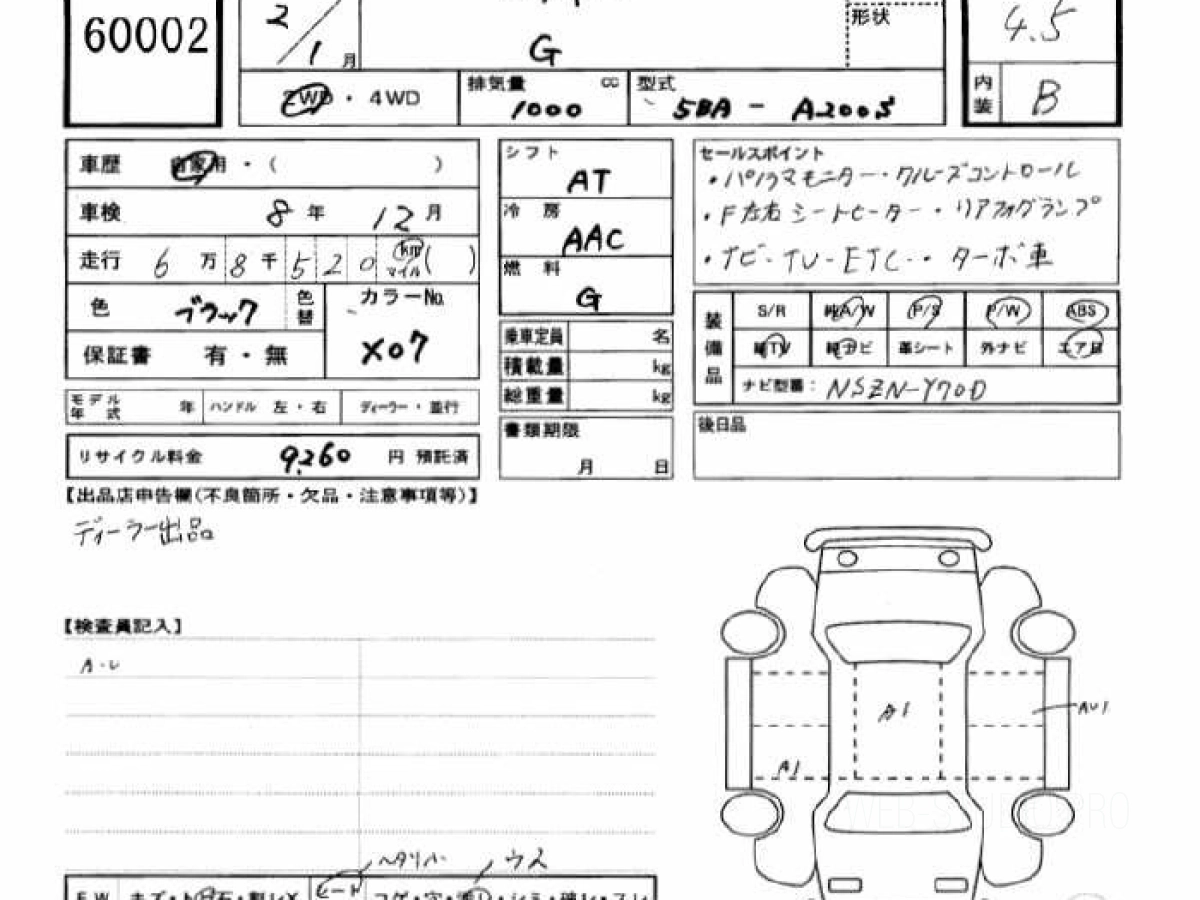 60002
2/1 月
G
形状
4.5
2WD ・ 4WD
排気量 cc 1000
型式 5BA - A200S
内装 B
車歴 自家用 ・ ( )
車検 8 年 12 月
走行 6 万 8 千 5 2 0 km マイル ( )
色 ブラック 色替
カラーNo. X07
保証書 有 ・ 無
モデル年式 年 ハンドル 左 ・ 右 ディーラー ・ 並行
リサイクル料金 9,260 円 預託済
シフト AT
冷房 AAC
燃料 G
乗車定員 名
積載量 kg
総重量 kg
書類期限
月 日
セールスポイント
・パノラマモニター・クルーズコントロール
・F左右シートヒーター・リアフォグランプ
・ナビ・TV・ETC・・ターボ車
装備品
S/R 純A/W P/S P/W ABS
純TV 純ナビ 革シート 外ナビ エアB
ナビ型番: NSZN-Y70D
後日品
【出品店申告欄(不良箇所・欠品・注意事項等)】
ディーラー出品
【検査員記入】
A・U
A1
AU1
A1
ヘタリ小
ウス
FW キズ・
シート コゲ・穴・